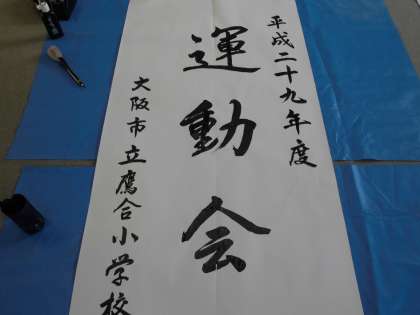 平成二十九年度
運動会
大阪市立鷹合小学校